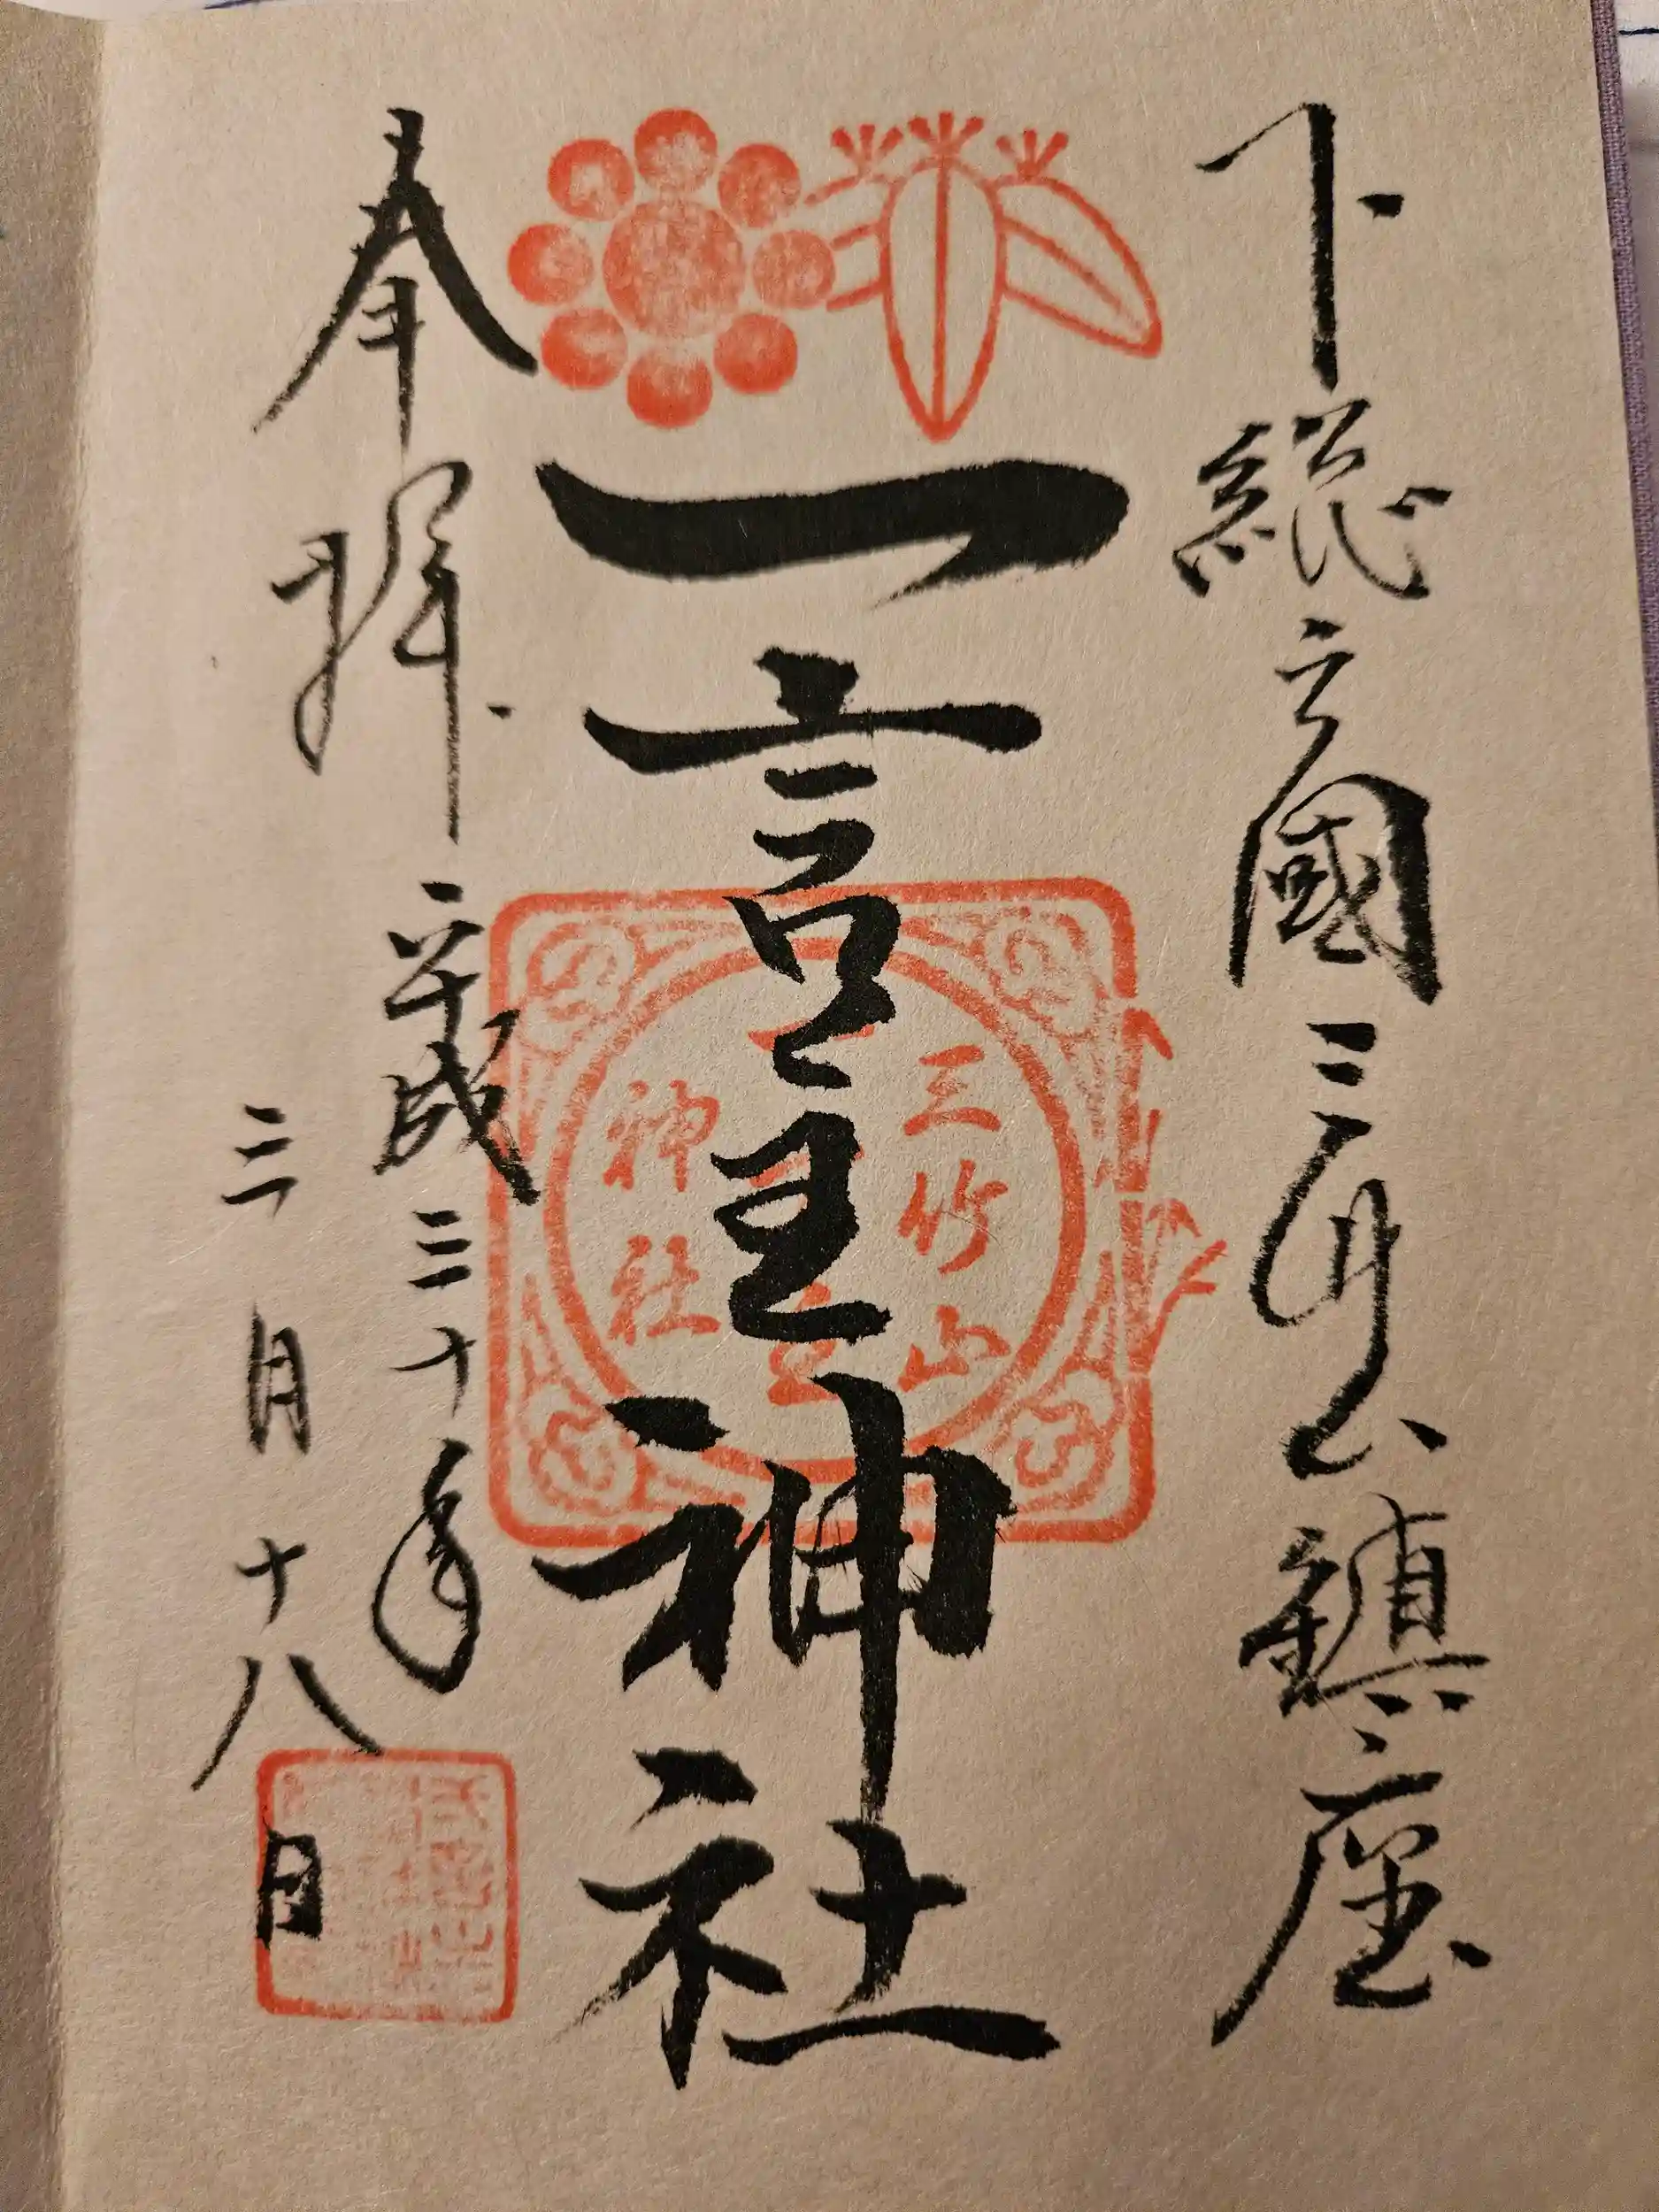 下総之國三竹山鎮座
一言主神社
奉拝
平成三十年
三月十八日
三竹山
神社